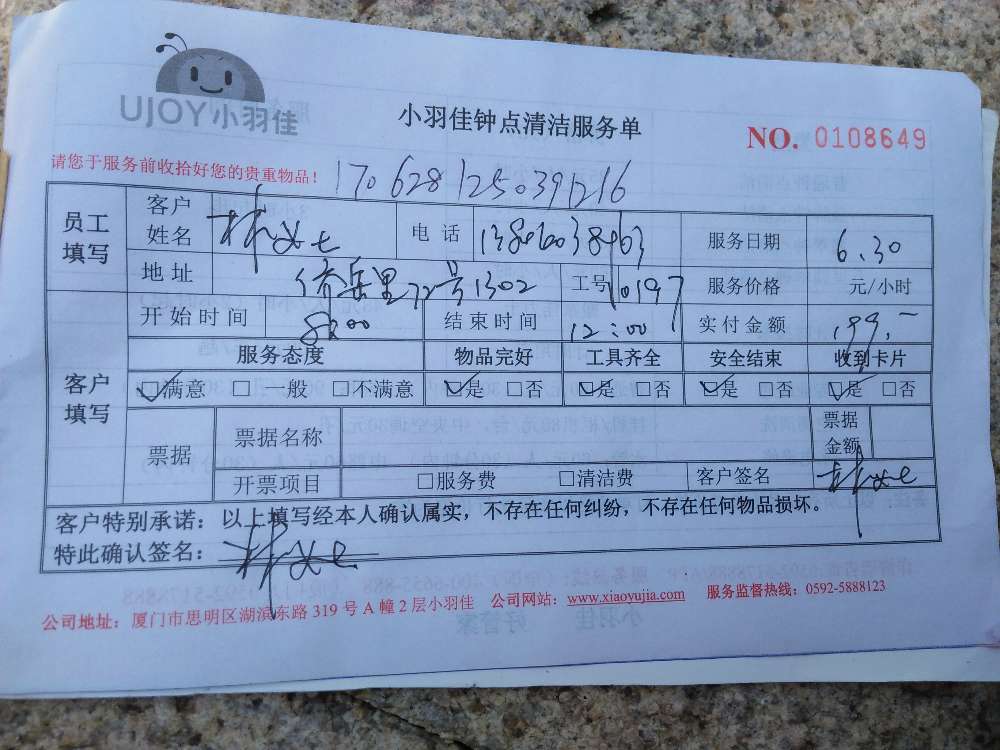 UJOY小羽佳
小羽佳钟点清洁服务单
NO. 0108649
请您于服务前收拾好您的贵重物品！
1706281250391216
员工填写 客户姓名 电话 服务日期 6.30
地址 侨岳里72号1302 工号 10197 服务价格 元/小时
开始时间 8:00 结束时间 12:00 实付金额 199.-
客户填写 服务态度 物品完好 工具齐全 安全结束 收到卡片
☑满意 □一般 □不满意 ☑是 □否 ☑是 □否 ☑是 □否 ☑是 □否
票据 票据名称 票据金额
开票项目 □服务费 □清洁费 客户签名
客户特别承诺：以上填写经本人确认属实，不存在任何纠纷，不存在任何物品损坏。
特此确认签名：
公司地址：厦门市思明区湖滨东路 319 号 A 幢 2 层小羽佳 公司网站：www.xiaoyujia.com 服务监督热线：0592-5888123